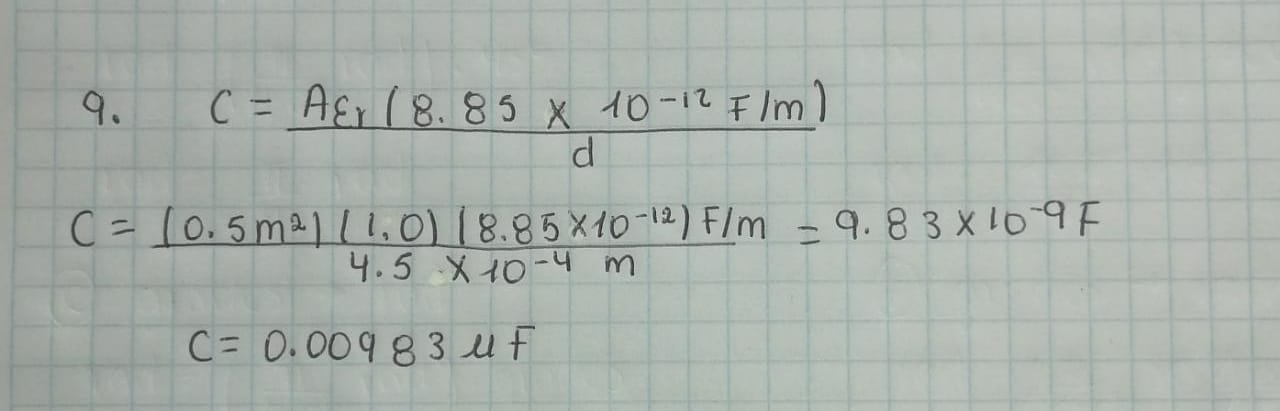 9. C = Aεr (8.85 × 10⁻¹² F/m) / d
C = (0.5m²) (1.0) (8.85×10⁻¹²) F/m / 4.5 ×10⁻⁴ m = 9.83×10⁻⁹F
C = 0.00983 μF